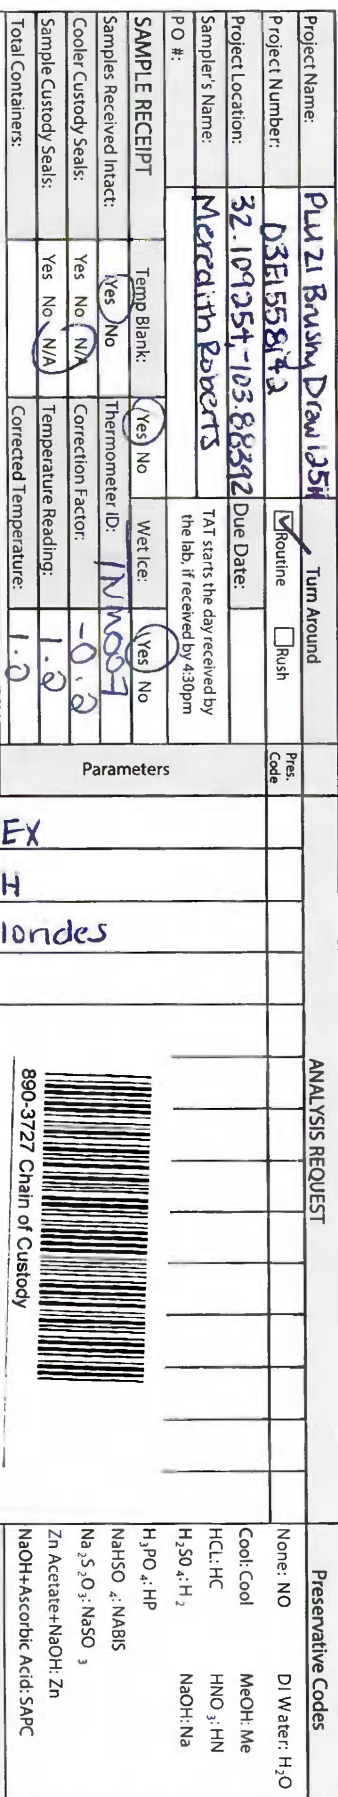 Project Name: PLU 21 Brushy Draw 125H Turn Around
Project Number: 03E1558142 Routine Rush Pres. Code
Project Location: 32.109254,-103.88392 Due Date:
Sampler's Name: Meredith Roberts TAT starts the day received by
the lab, if received by 4:30pm
PO #:
SAMPLE RECEIPT Temp Blank: Yes No Wet Ice: Yes No
Samples Received Intact: Yes No Thermometer ID: TNM007
Cooler Custody Seals: Yes No N/A Correction Factor: -0.2
Sample Custody Seals: Yes No N/A Temperature Reading: 1.2
Total Containers: Corrected Temperature: 1.0
Parameters
EX
H
lorides
ANALYSIS REQUEST
890-3727 Chain of Custody
Preservative Codes
None: NO DI Water: H2O
Cool: Cool MeOH: Me
HCL: HC HNO3: HN
H2SO4: H2 NaOH: Na
H3PO4: HP
NaHSO4: NABIS
Na2S2O3: NaSO3
Zn Acetate+NaOH: Zn
NaOH+Ascorbic Acid: SAPC